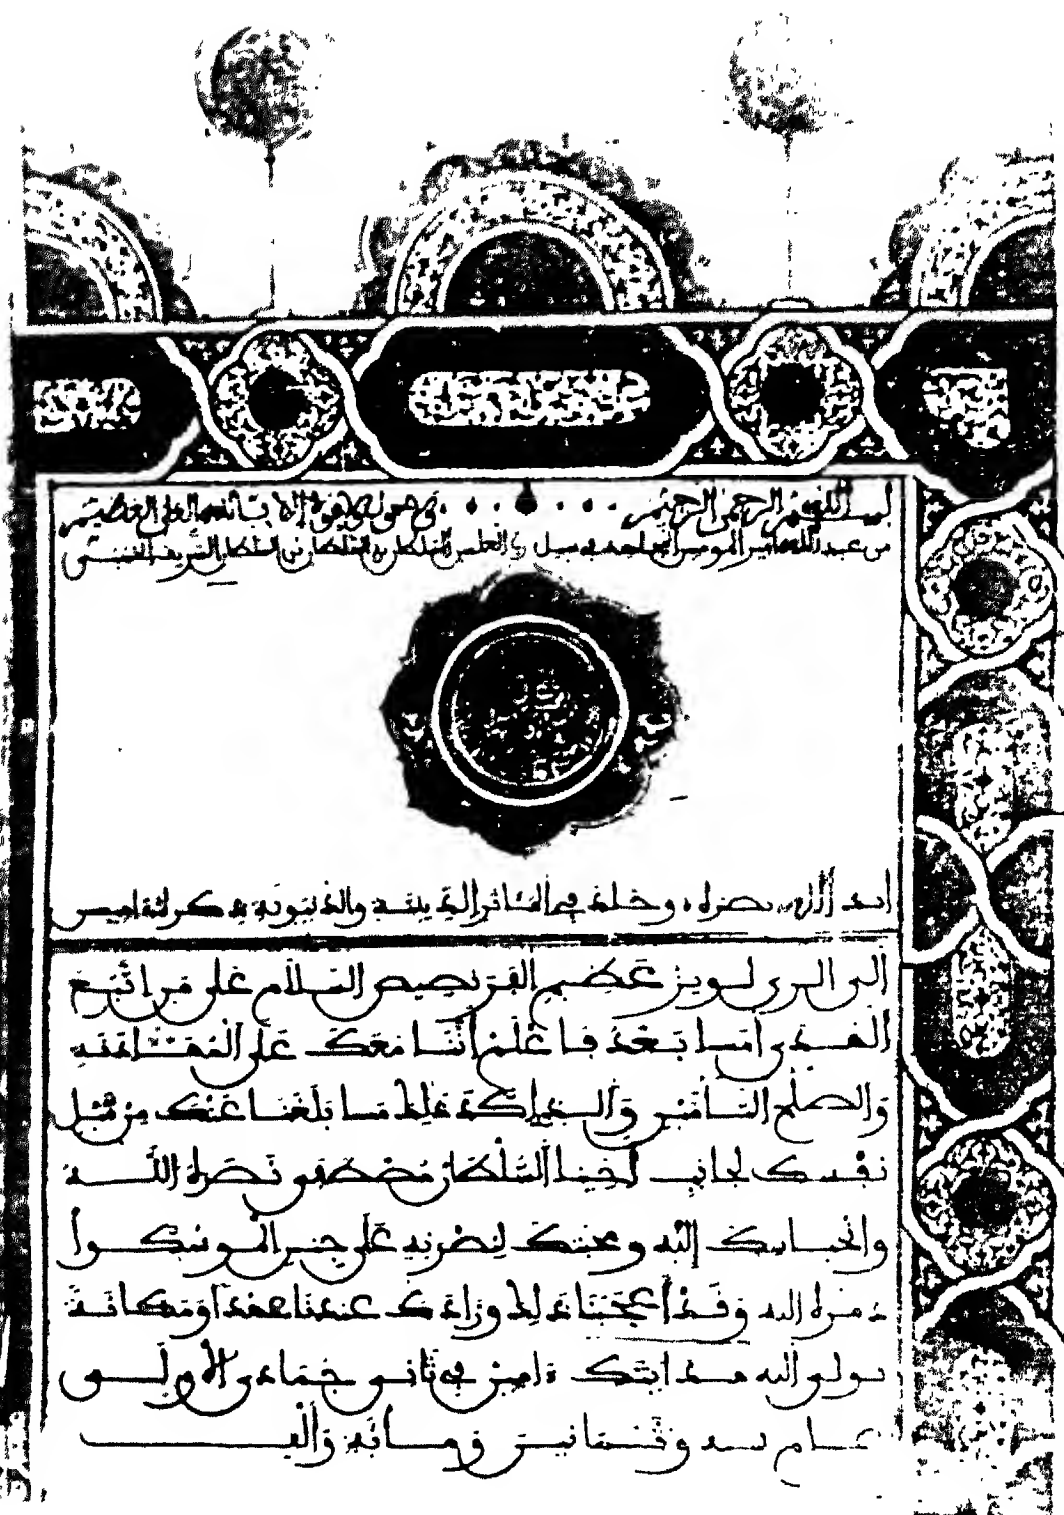 بسم الله الرحمن الرحيم ولا حول ولا قوة إلا بالله العلي العظيم
من عبد الله أمير المومنين المجاهد في سبيل رب العلمين السلطان بن السلطان بن السلطان الشريف الحسني
أيد الله نصره وخلد في المآثر الدينية والدنيوية ذكره
إلى الري لويز عظيم الفرنصيص السلام على من اتبع
الهدى أما بعد فاعلم أننا معك على المهادنة
والصلح التام على ما بلغنا عنك من قبل
نفسك لجانب أخينا السلطان مصطفى نصره الله
وانحياشك إليه ومحبتك لنصرته على جنس الموسكوا
دمره الله وقد أعجبنا ذلك وزادك عندنا عهدا ومكانة
في ثاني جمادى الأولى
عام وثمانين ومائة وألف